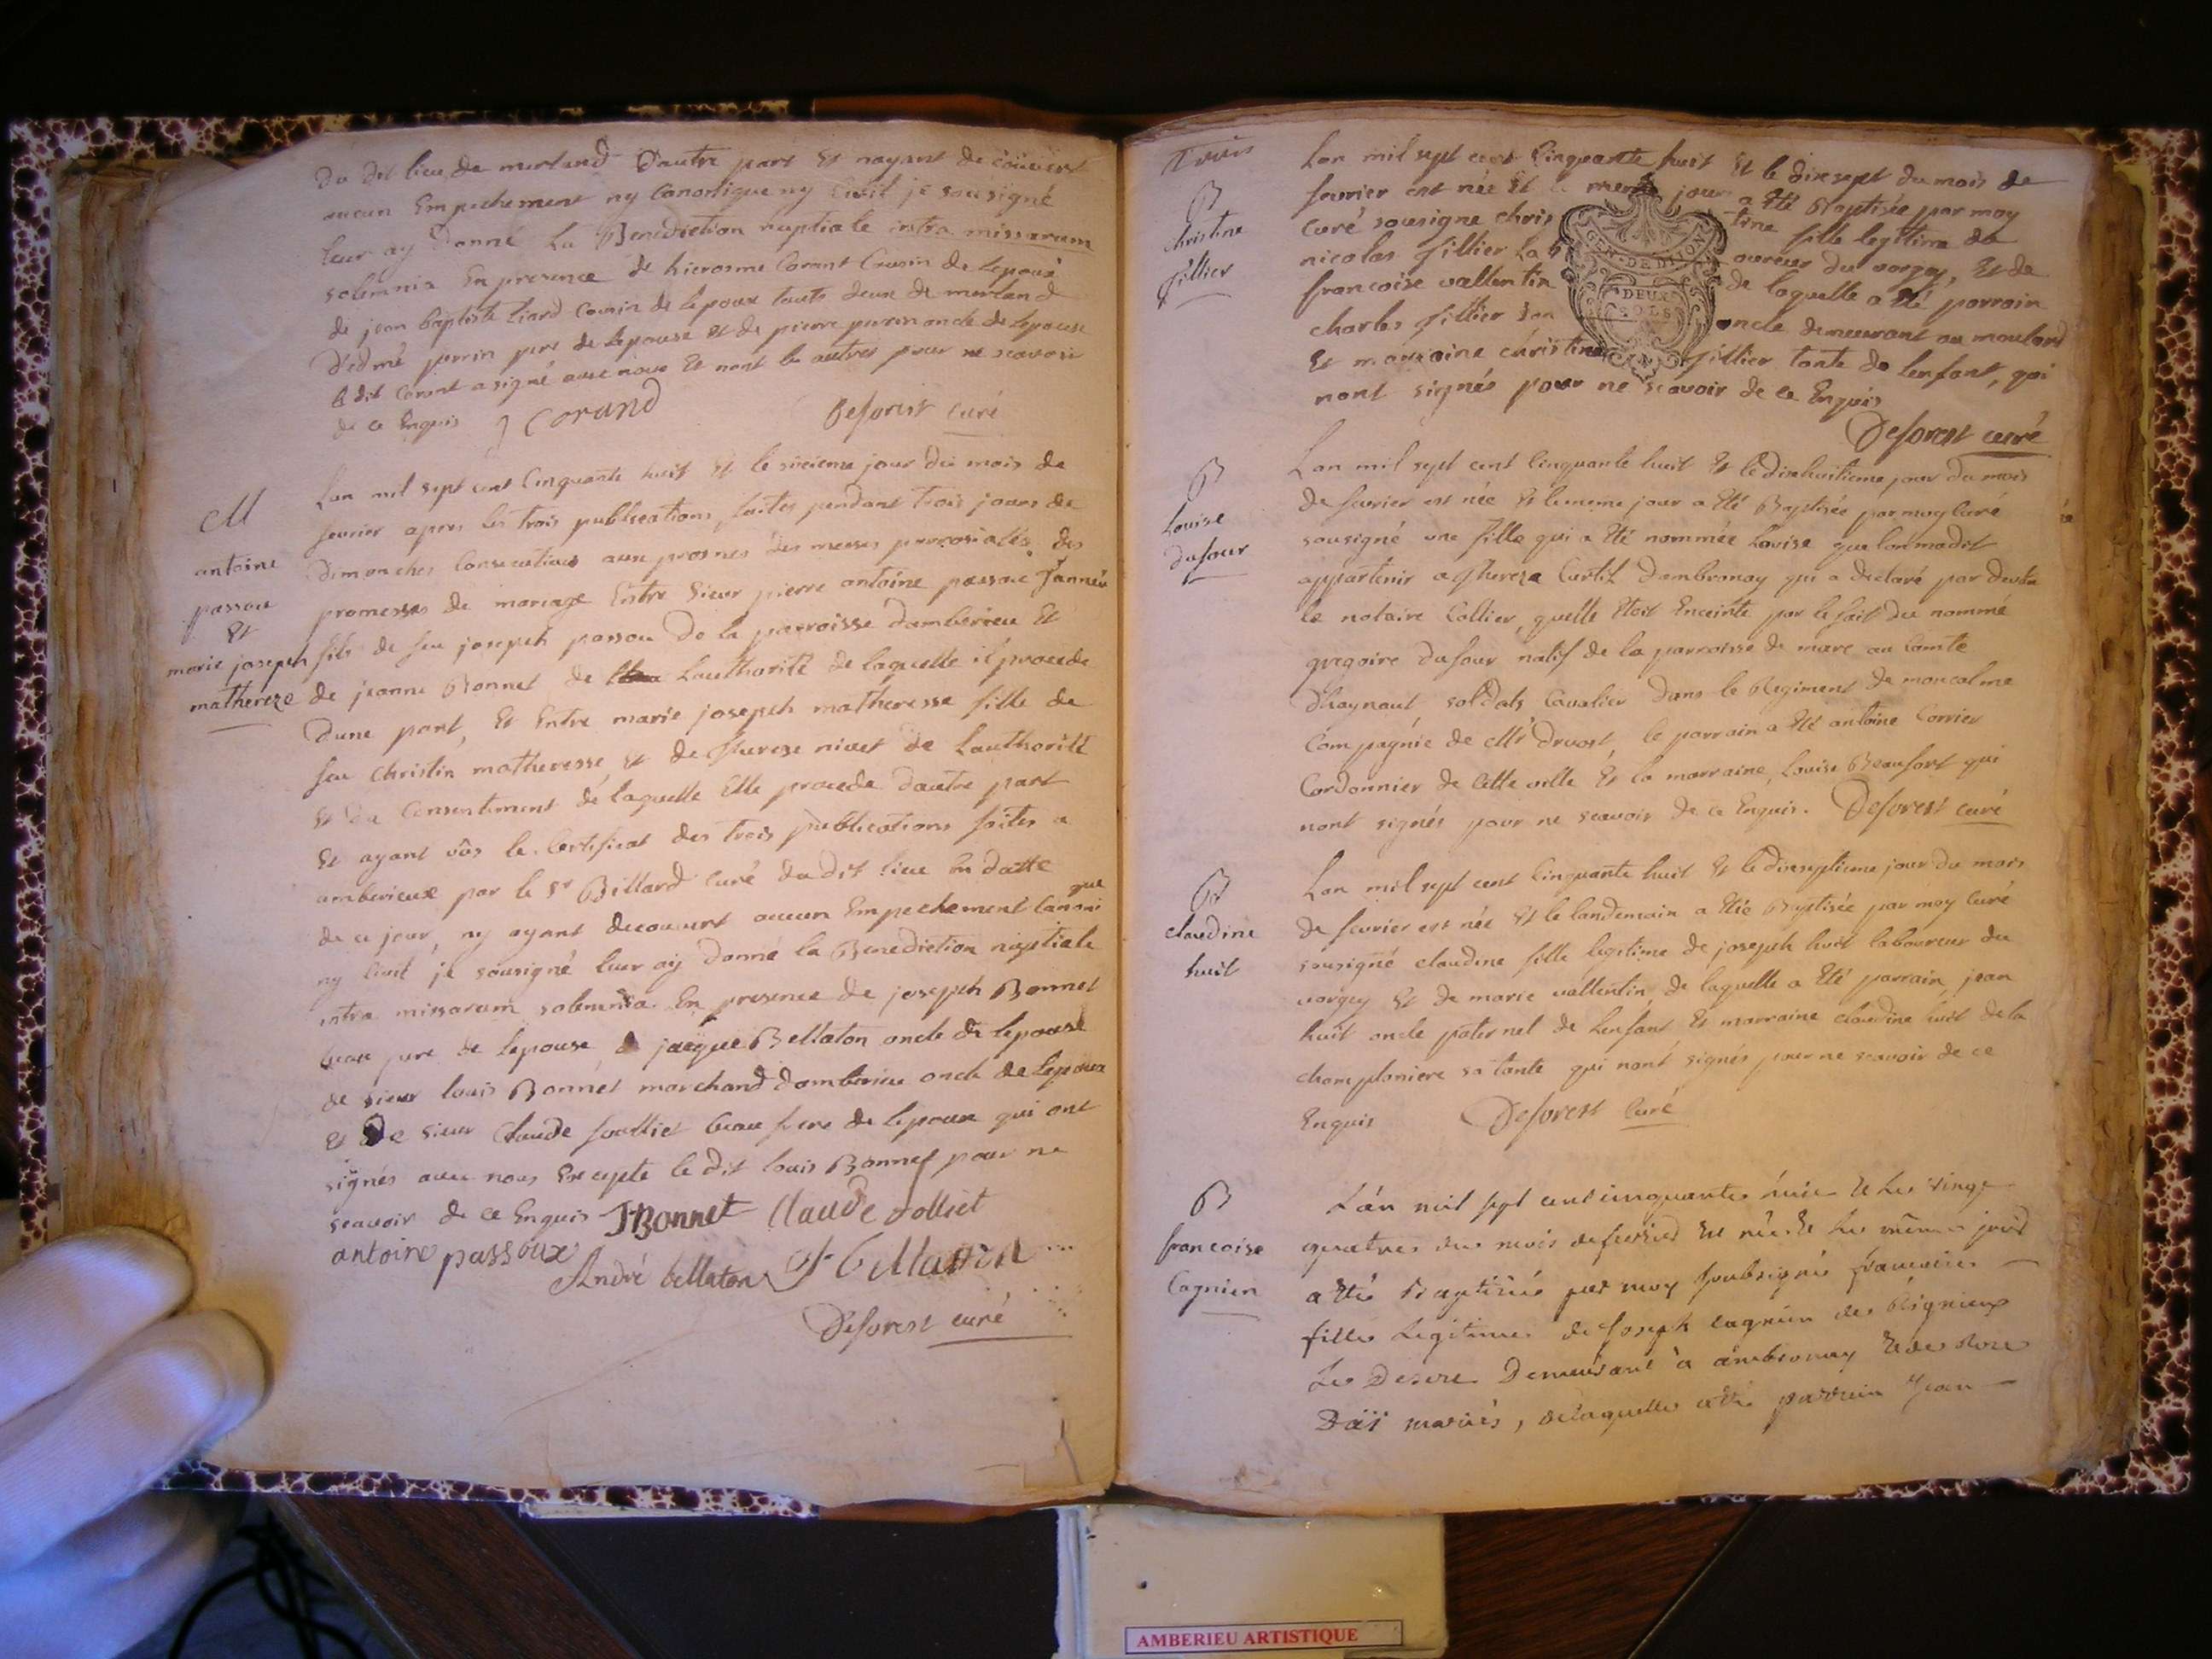 du dit lieu de merland d'autre part et nayant decouvert
aucun Empechement ny canonique ny Civil je sousigné
leur ay donné La Benediction nuptiale intra missarum
solemnia En presence de hierosme Corant Cousin de lepoux
de jean baptiste Liard Cousin de lepoux touts deux de merland
d'edmé perrin pere de lepouse et de pierre perrin oncle de lepouse
le dit Corant a signé avec nous Et nont les autres pour ne scavoir
de ce Enquis J Corand Deforest curé
M
antoine
passou
et
marie joseph
mathereze
Lan mil sept cent Cinquante huit Et le sixieme jour du mois de
fevrier apres les trois publications faites pendant trois jours de
dimanches Consecutives aux prosnes des messes parrosiales des
promesses de mariage Entre Sieur pierre antoine passou
fils de feu joseph passou de la parroisse damberieu Et
de jeanne Bonnet de Lauthorité de laquelle il procede
dune part, Et Entre marie joseph matheresse fille de
feu Christin matheresse et de therese nivet de Lauthorité
Et du Consentement de laquelle Elle procede dautre part
Et ayant vûs le Certificat des trois publications faites a
amberieux par le Sr Billard Curé du dit lieu En datte
de ce jour, ny ayant decouvert aucun Empechement Canoni
que
ny Civil je sousigné leur ay donné la Benediction nuptiale
intra missarum solemnia En presence de joseph Bonnet
beau pere de lepouse de jacque Bellaton oncle de lepouse
de sieur louis Bonnet marchand damberieu oncle de lepoux
et De sieur Claude folliet beau frere de lepoux qui ont
signés avec nous Excepté le dit louis Bonnet pour ne
scavoir de ce Enquis J Bonnet Claude folliet
antoine passoux
André bellaton J bellaton
Deforest curé
B
Christine
fillier
Lan mil sept cent Cinquante huit Et le dixsept du mois de
fevrier est née Et le meme jour a Eté Baptisée par moy
Curé sousigne christine fille legitime de
nicolas fillier Laboureur du vorgey, Et de
francoise vallentin de laquelle a Eté parrain
charles fillier son oncle demeurant au moulard
Et marraine christine fillier tante de lenfant, qui
nont signés pour ne scavoir de ce Enquis
GEN. DE DIJON
DEUX
SOLS
Deforest curé
B
Louise
dufour
Lan mil sept cent Cinquante huit Et le dixhuitieme jour du mois
de fevrier est née Et le meme jour a Eté Baptisée par moy Curé
sousigné une fille qui a Eté nommée Louise que lon ma dit
appartenir a thereza Curtil dambronay qui a declaré par devant
le notaire Collier, quelle Etoit Enceinte par le fait du nommé
gregoire dufour natif de la parroisse de marc au Comté
dhaynaut soldats Cavalier dans le Regiment de moncalme
Compagnie de Mr druost, le parrain a Eté antoine Corrier
Cordonnier de Cette ville Et la marraine, Louise Beaufort qui
nont signés pour ne scavoir de ce Enquis. Deforest curé
B
claudine
huit
Lan mil sept cent Cinquante huit Et le dixseptieme jour du mois
de fevrier est née Et le landemain a Eté Baptisée par moy Curé
sousigné claudine fille legitime de joseph huit laboureur du
vorgey Et de marie vallentin, de laquelle a Eté parrain jean
huit oncle paternel de lenfant Et marraine claudine huit de la
championiere sa tante qui nont signés pour ne scavoir de ce
Enquis Deforest Curé
B
francoise
Cagnien
L'an mil sept cent cinquante huit Et Le vingt
quatre du mois de fevrier Est née Et Le même jour
a Eté Baptisée par moy soubsigné francoise
fille Legitime de joseph cagnin de Rignieux
Le Desert Demeurant à ambronay Et de
mariés, de laquelle a Eté parrain Jean
AMBERIEU ARTISTIQUE